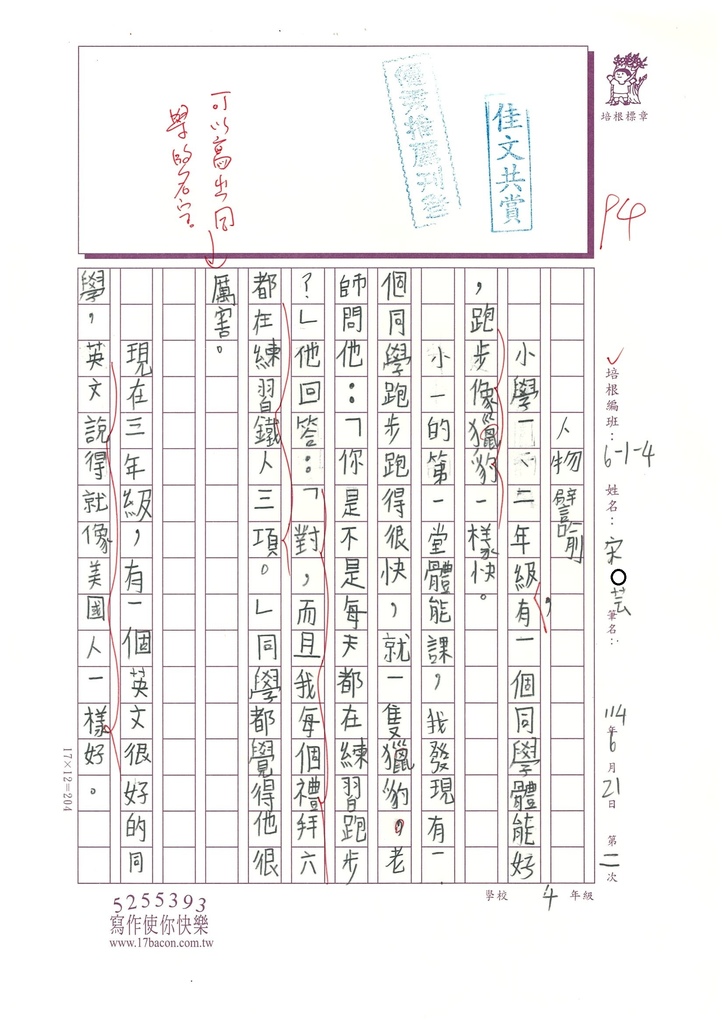 培根標章
佳文共賞
優秀推薦刊登
可以寫出同
學的名字。
94
培根編班：6-1-4 姓名：宋○芸 筆名： 114年6月21日 第二次
人物譬喻
小學一、二年級有一個同學體能好
，跑步像獵豹一樣快。
小一的第一堂體能課，我發現有一
個同學跑步跑得很快，就一隻獵豹。老
師問他：「你是不是每天都在練習跑步
？」他回答：「對，而且我每個禮拜六
都在練習鐵人三項。」同學都覺得他很
厲害。
現在三年級，有一個英文很好的同
學，英文說得就像美國人一樣好。
17×12=204
學校 4 年級
5255393
寫作使你快樂
www.17bacon.com.tw